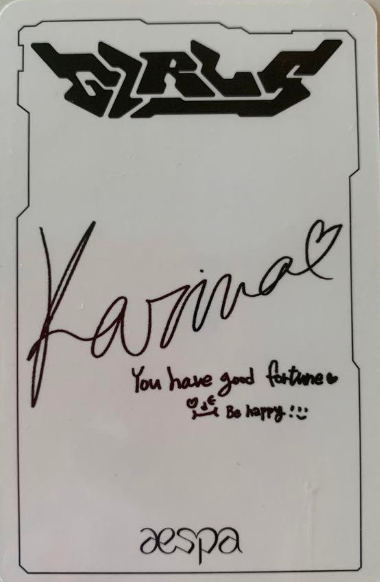 GIRLS
Karina♡
You have good fortune♥
Be happy!!!
aespa